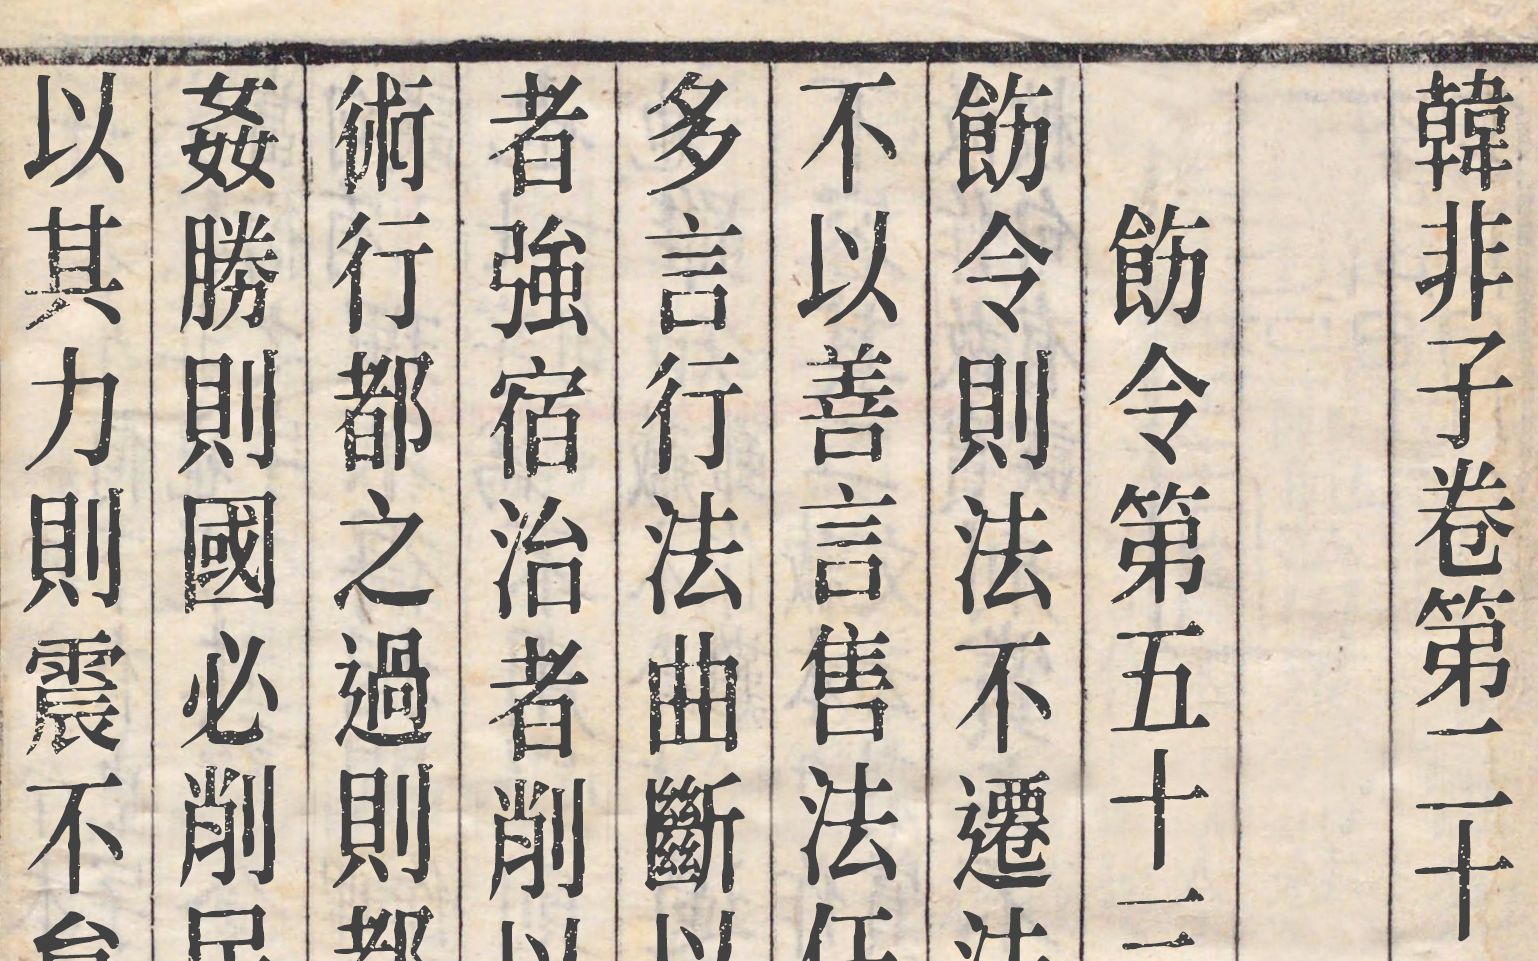 韓非子卷第二十
飭令第五十三
飭令則法不遷法
不以善言售法任
多言行法曲斷以
者強宿治者削以
術行都之過則都
姦勝則國必削民
以其力則震不